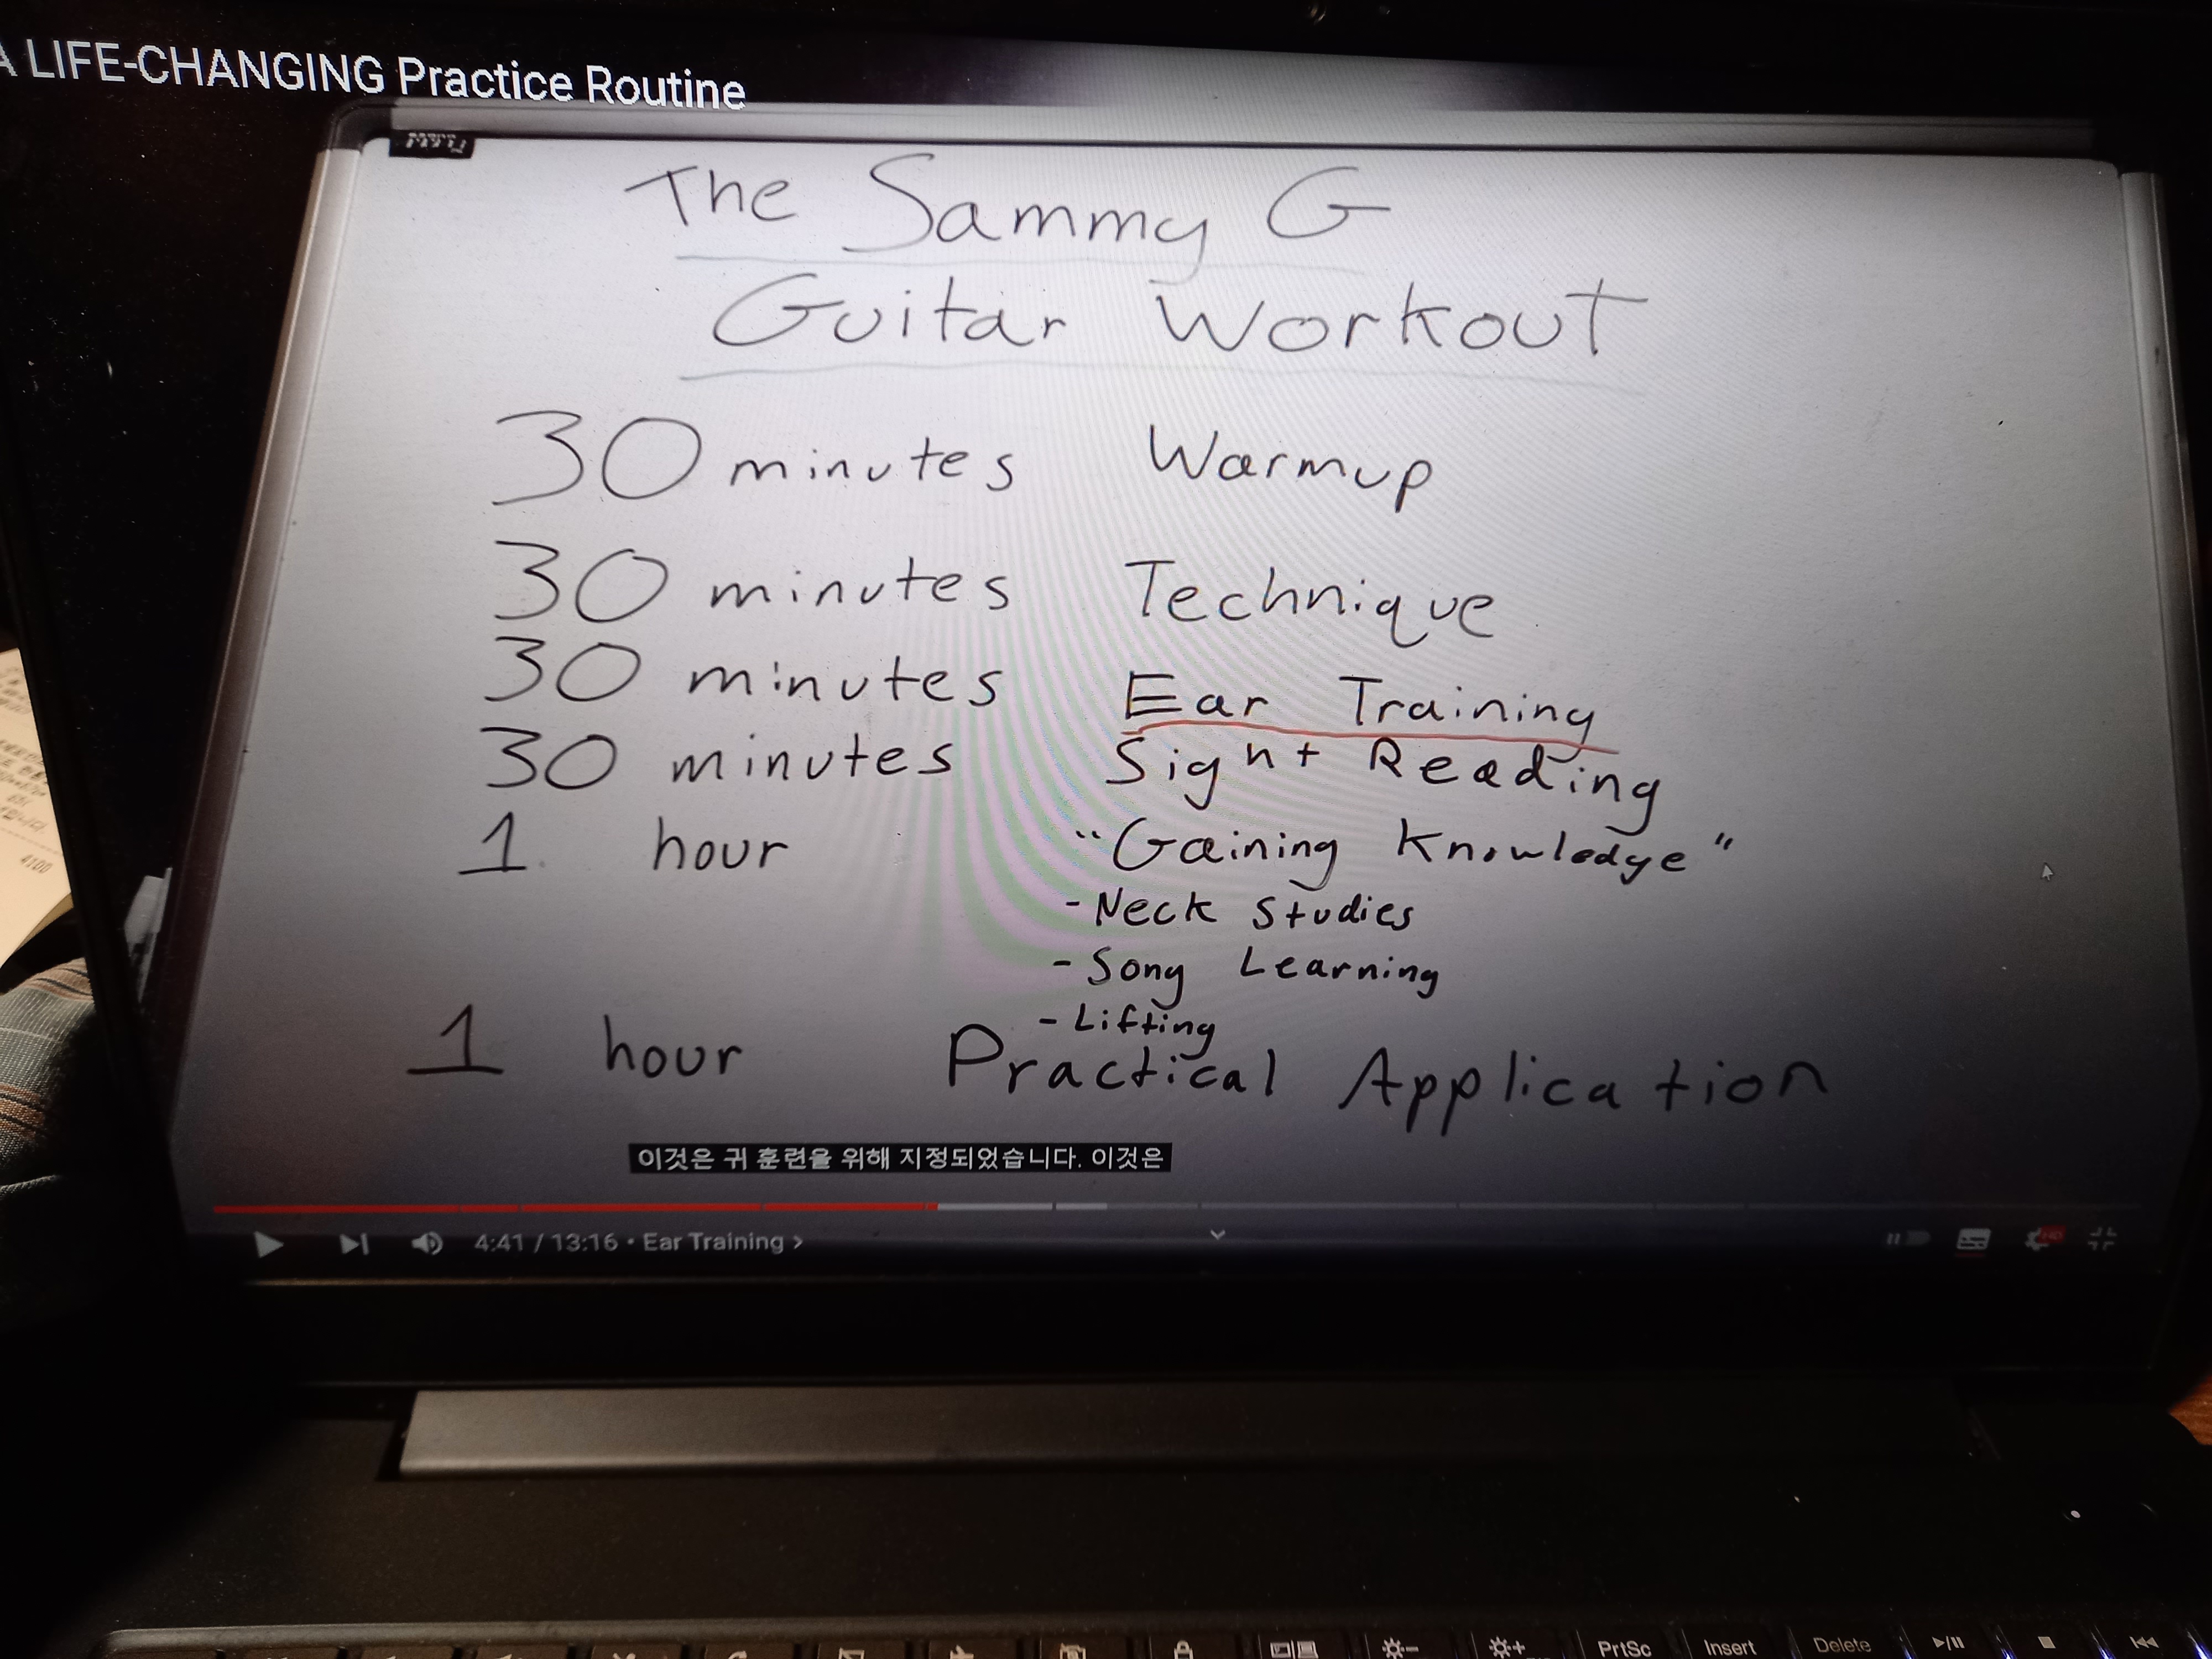 A LIFE-CHANGING Practice Routine
The Sammy G
Guitar Workout
30 minutes Warmup
30 minutes Technique
30 minutes Ear Training
30 minutes Sight Reading
1 hour "Gaining Knowledge"
- Neck Studies
- Song Learning
- Lifting
1 hour Practical Application
이것은 귀 훈련을 위해 지정되었습니다. 이것은
4:41 / 13:16 • Ear Training >
PrtSc Insert Delete
4100